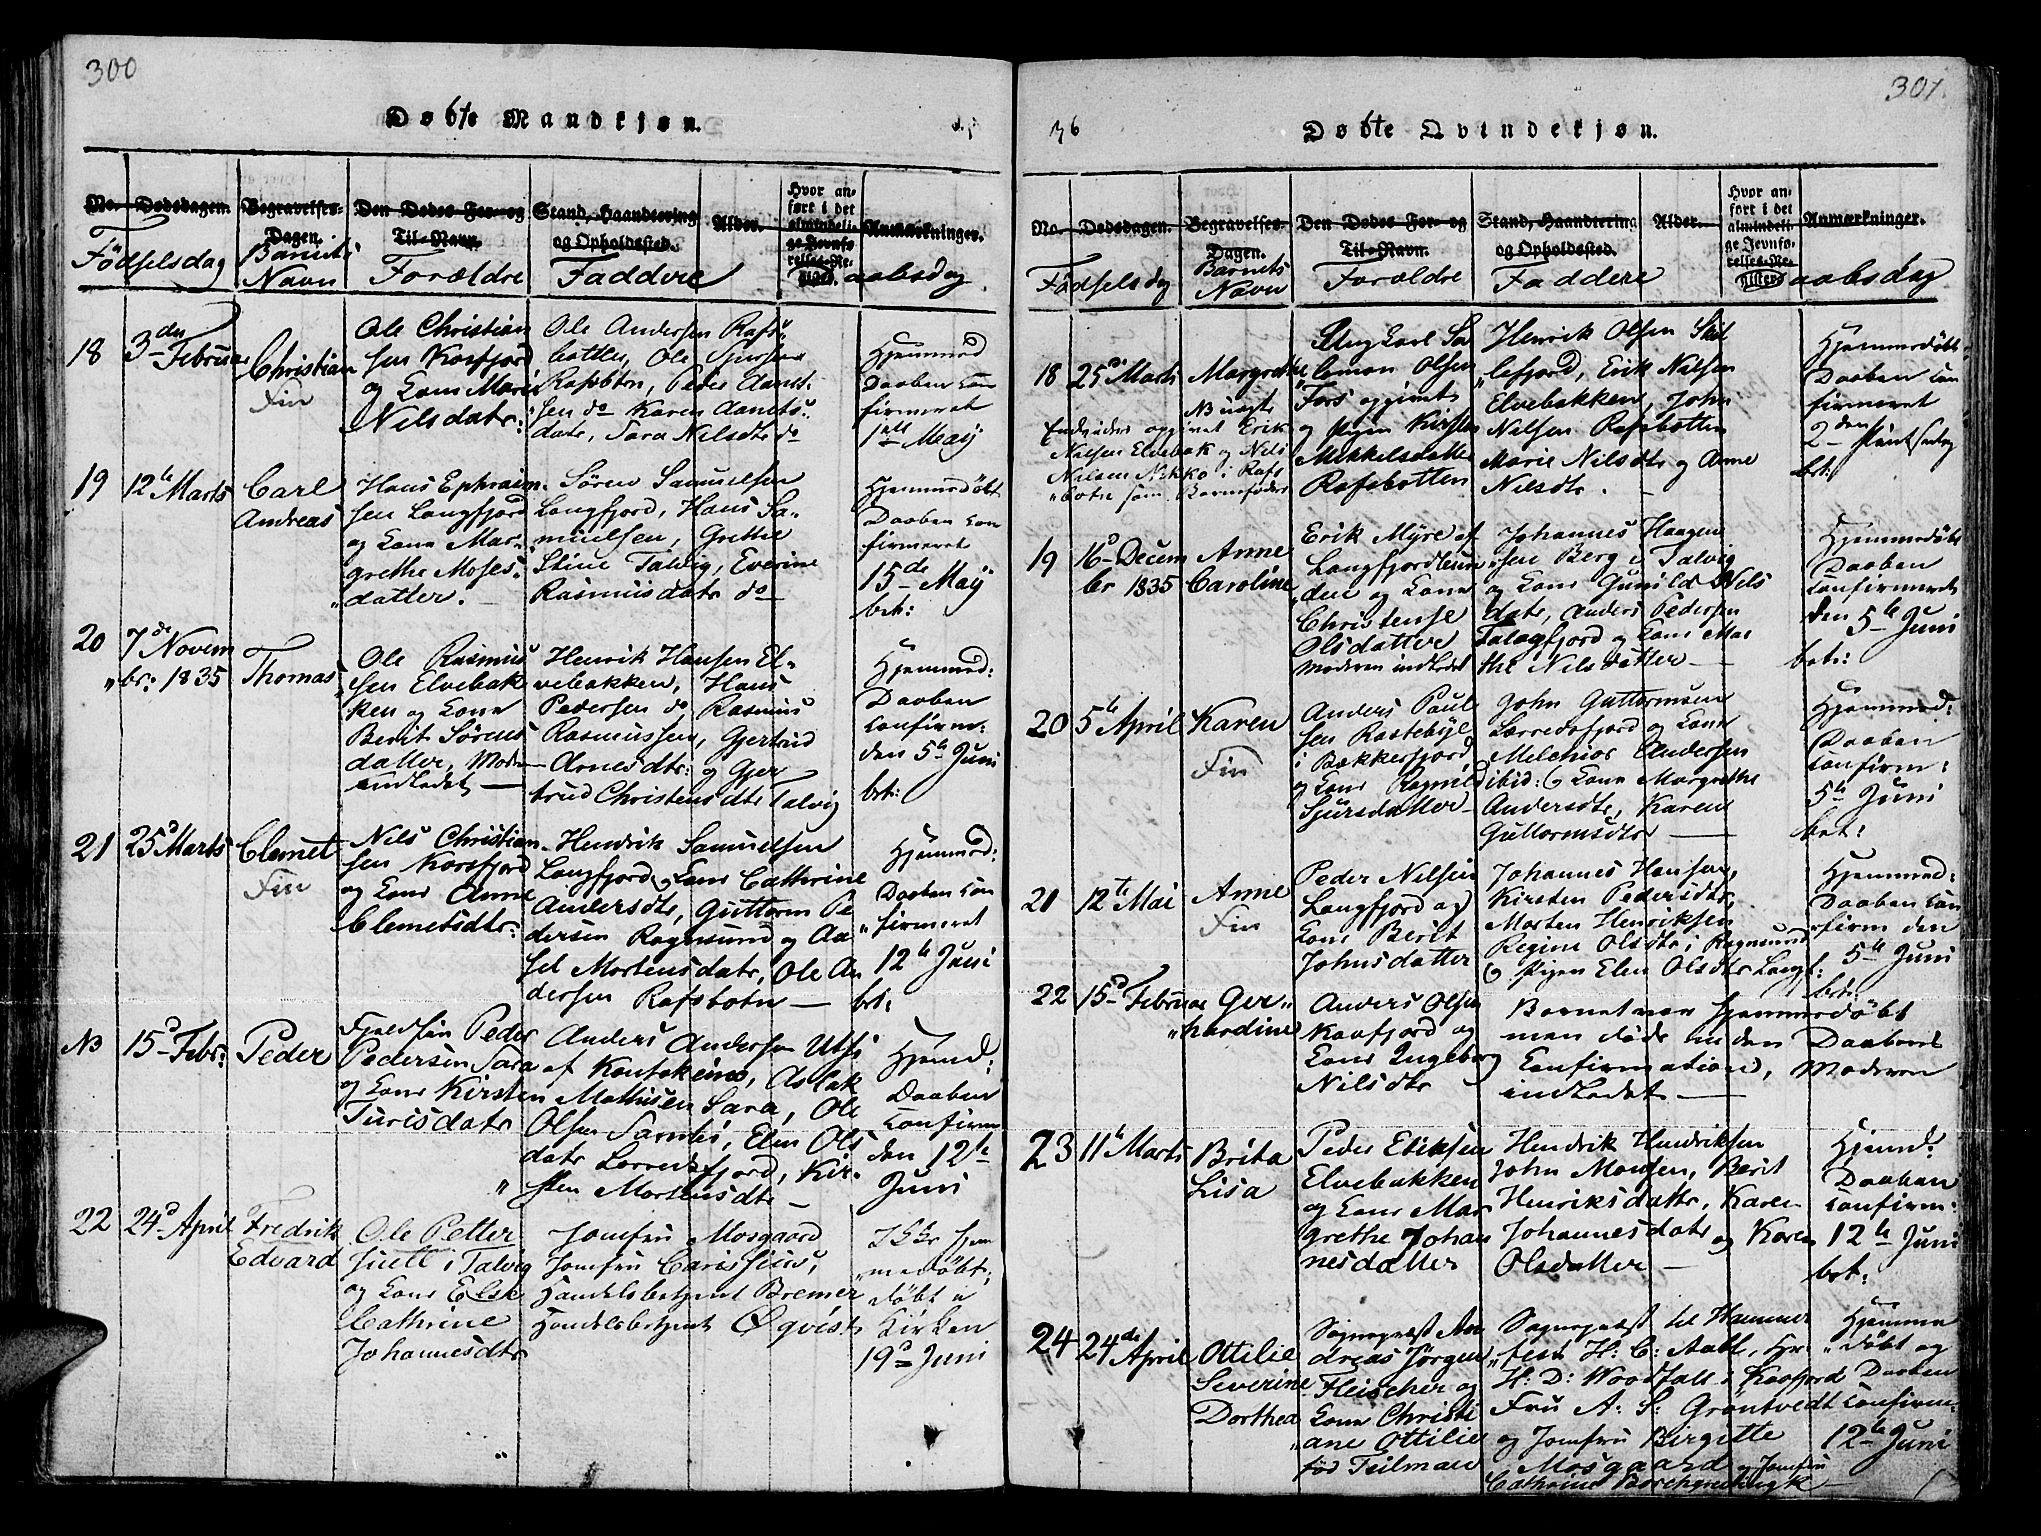 300
Døbte Mandkjøn.
No. Dødsdagen. Begravelses-Dagen. Den Dødes For- og Til-Navn. Stand, Haandtering og Opholdssted. Alder. Hvor anført i det almindelige Jevnførelses-Register. Anmærkninger.
Fødselsdag Barnets Navn Forældre Faddere Daabsdag.
18 3den Februar Christian
Fin
Ole Christian
sen Korsfjord
og Kone Marie
Nilsdatr:
Ole Andersen Rafs
botten, Ole
Rafsbotn, Peder
sen do Karen
datr, Sara Nilsdtr do
Hjemmed
Daaben con
firmeret
1ste Maÿ
19 12te Marts Carl
Andreas
Hans Ephraim
sen Langfjord
og Kone Mar-
grethe Moses-
datter.
Søren Samuelsen
Langfjord, Hans Sa-
muelsen, Grethe
Stine Talvig, Everine
Rasmusdatr do
Hjemmedøbt
Daaben con
firmeret
15de Maÿ
bet:
20 7de Novem
br: 1835 Thomas
Ole Rasmus
sen Elvebak
ken og Kone
Berit Sørens
datter, Moder
indledet
Henrik Hansen El-
vebakken, Hans
Pedersen do Rasmus
Rasmussen, Gjertrud
Arnesdtr: og Gjer
trud Christensdtr Talvig
Hjemmed:
Daaben
confirm:
den 5te Juni
bet:
21 25d Marts Clemet
Fin
Nils Christian
sen Korsfjord
og Kone Anne
Clemetsdtr:
Hendrik Samuelsen
Langfjord og Kone Cathrine
Andersdtr, Guttorm Pe
dersen Rognsund og Aa
sel Mortensdatr, Ole An
dersen Rafsbotn
Hjemmed:
Daaben con
firmeret
12te Juni
bet:
NB 15d Febr: Peder
Fjeldfin Peder
Pedersen Sara
og Kone Kirsten
Turisdatr
Anders Andersen Utsi
af Koutokeino, Aslak
Mathisen Sara, Ole
Olsen, Elen Ols
datr Lerredsfjord, Kir-
sten Mortensdtr
Hjemd:
Daaben
confirm
den 12te
Juni
22 24d April Fredrik
Edvard
Ole Petter
i Talvig
og Kone Else
Cathrine
Johannesdtr
Jomfru Mosgaard
Jomfru
Handelsbetjent Bremer
Handelsbetjent Øqvist
Ikke hjem
medøbt,
døbt i
Kirken
19d Juni
36
301.
Døbte Qvindekjøn.
No. Dødsdagen. Begravelses-Dagen. Den Dødes For- og Til-Navn. Stand, Haandtering og Opholdssted. Alder. Hvor anført i det almindelige Jevnførelses-Register. Anmærkninger.
Fødselsdag Barnets Navn Forældre Faddere Daabsdag
18 25d Marts Margrethe
NB uægte
Endvidere opgivet Erik
Nielsen Elvebak og Nils
Nielsen Nikko i Rafs
botn som Barnefader
Ungkarl Sa
lomon Olsen
Fors opgivet
og pigen Kirsten
Mikkelsdatter
Rafsbotten
Henrik Olsen Skil
lefjord, Erik Nilsen
Elvebakken, John
Nilsen Rafsbotten
Marie Nilsdtr og Anne
Nilsdtr.
Hjemmedøbt
Daaben con
firmeret
2den Pintsedag
bet:
19 16d Decem
br 1835 Anne
Caroline
Erik Myre af
Langfjordbun
den og Kone
Christense
Olsdatter
Moderen indledet
Johannes Haagen
sen Berg i Talvig
og Kone Gunild Nils
datr, Anders Pedersen
Talvigfjord og Kone Mar
the Nilsdatter
Hjemmedøbt
Daaben
confirmeret
den 5te Juni
bet:
20 5te April Karen
Fin
Anders Poul
sen Rastebÿl
i Bækkerfjord
og Kone Ragnild
Sjursdatter
John Guttormsen
Lerredsfjord og Kone
Melchior Andersen
ibid: og Kone Margrethe
Andersdtr, Karen
Guttormsdtr
Hjemmed:
Daaben
confirm:
5te Juni
bet:
21 12te Mai Anne
Fin
Peder Nilsen
Langfjord og
Kone Berit
Johnsdatter
Johannes Hansen,
Kirsten Pedersdtr,
Morten Henriksen
Regine Olsdtr i Rognsund
og Pigen Elen Olsdtr Langf:
Hjemmed:
Daaben con
firm den
5te Juni
bet:
22 15d Februar Ger
hardine
Anders Olsen
Kaafjord og
Kone Ingeborg
Nilsdtr
Barnet var hjemmedøbt
men døde inden Daabens
Confirmation, Moderen
indledet
23 11te Marts Brita
Lisa
Peder Eriksen
Elvebakken
og Kone Mar
grethe Johan
nesdatter
Hendrik Hendriksen
John Monsen, Berit
Henriksdatter, Karen
Johannesdatr og Karen
Olsdatter
Hjemd:
Daaben
confirm:
12te Juni
bet:
24 24de April Ottilie
Severine
Dorthea
Sognepræst An
dreas Jørgen
Fleischer og
Kone Christi
ane Ottilie
fød Teilman
Sognepræst til Hammer
fest H: C: Aall, Hr.
H: D: Woodfall i Kaafjord
Fru A: S: Grøntvedt
og Jomfru Birgitte
Mosgaard og Jomfru
Cathrine Borchgrevingk
Hjemme
døbt og
Daaben
confirm:
12te Juni